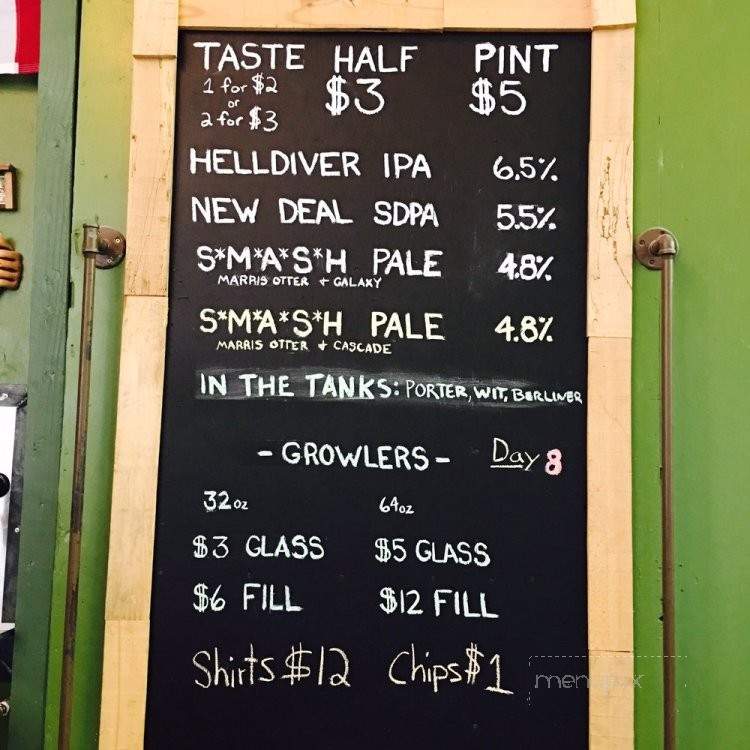 TASTE HALF PINT
1 for $2 $3 $5
or
2 for $3
HELLDIVER IPA 6.5%
NEW DEAL SDPA 5.5%
S*M*A*S*H PALE 4.8%
MARRIS OTTER + GALAXY
S*M*A*S*H PALE 4.8%
MARRIS OTTER + CASCADE
IN THE TANKS: PORTER, WIT, BERLINER
- GROWLERS - Day 8
32oz 64oz
$3 GLASS $5 GLASS
$6 FILL $12 FILL
Shirts $12 Chips $1
menupix